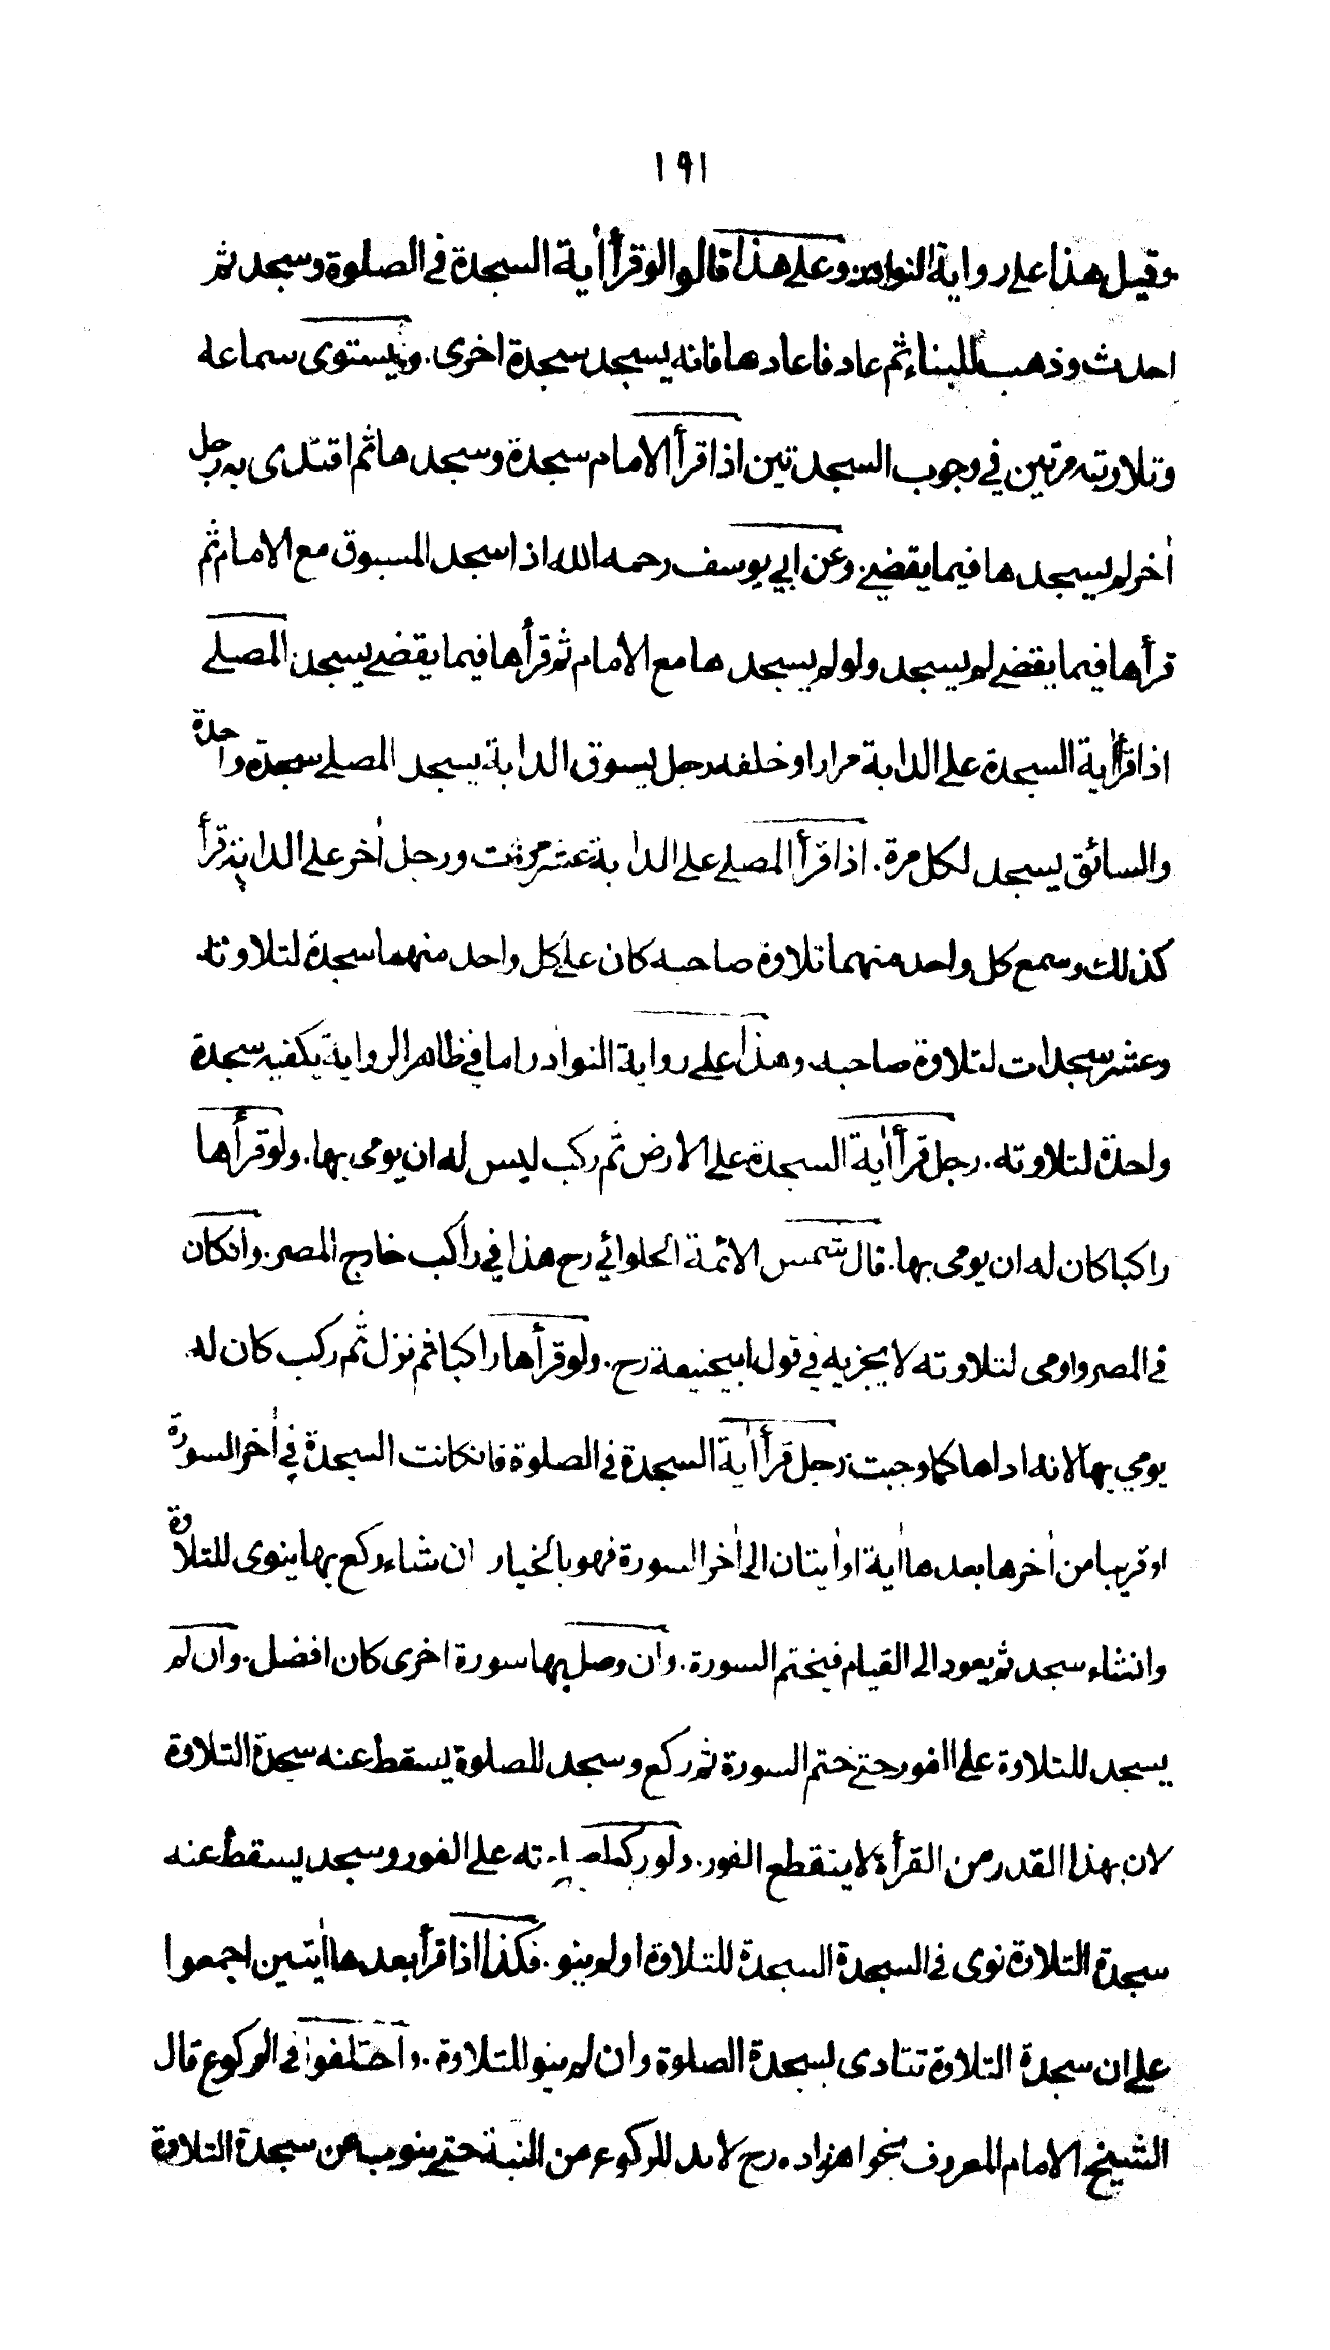 ١٩١
وقيل هذا على رواية النوادر وعلى هذا قالوا لو قرأ اٰية السجدة فى الصلوة وسجد ثم
احدث وذهب للبناء ثم عاد فاعادها فانه يسجد سجدة اخرى. ويستوى سماعه
وتلاوته مرتين في وجوب السجدتين اذا قرأ الامام سجدة وسجدها ثم اقتدى به رجل
اٰخر لم يسجدها فيما يقضي. وعن ابي يوسف رحمه الله اذا سجد المسبوق مع الامام ثم
قرأها فيما يقضے لم يسجد ولو لم يسجدها مع الامام ثم قرأها فيما يقضے يسجد. المصلے
اذا قرأ اٰية السجدة على الدابة مرارا وخلفه رجل يسوق الدابة يسجد المصلے سجدة واحدة
والسائق يسجد لكل مرة. اذا قرأ المصلے على الدابة عشر مرات ورجل اٰخر على الدابة قرأ
كذلك وسمع كل واحد منهما تلاوة صاحبه كان على كل واحد منهما سجدة لتلاوته
وعشر سجدات لتلاوة صاحبه. وهذا على رواية النوادر اما في ظاهر الرواية يكفيه سجدة
واحدة لتلاوته. رجل قرأ اٰية السجدة على الارض ثم ركب ليس له ان يومى بها. ولو قرأها
راكبا كان له ان يومى بها. قال شمس الائمة الحلوائي رح هذا في راكب خارج المصر. وانكان
فى المصر واومى لتلاوته لا يجزيه في قول ابيحنيفة رح. ولو قرأها راكبا ثم نزل ثم ركب كان له
يومي بها لانه اداها كما وجبت. رجل قرأ اٰية السجدة فى الصلوة فانكانت السجدة في اٰخر السورة
او قريبا من اٰخرها بعدها اٰية او اٰيتان الى اٰخر السورة فهو بالخيار ان شاء ركع بها ينوى للتلاوة
وانشاء سجد ثم يعود الى القيام فيختم السورة. وان وصل بها سورة اخرى كان افضل. وان لم
يسجد للتلاوة على الفور حتى ختم السورة ثم ركع وسجد للصلوة يسقط عنه سجدة التلاوة
لان بهذا القدر من القرأة لا ينقطع الفور. ولو ركع لصلاته على الفور وسجد يسقط عنه
سجدة التلاوة نوى فى السجدة السجدة للتلاوة او لم ينو. فكذا اذا قرأ بعدها اٰيتين اجمعوا
على ان سجدة التلاوة تتادى بسجدة الصلوة وان لم ينو للتلاوة. واختلفوا فى الركوع قال
الشيخ الامام المعروف بخواهرزاده رح لابد للركوع من النية حتى ينوب عن سجدة التلاوة